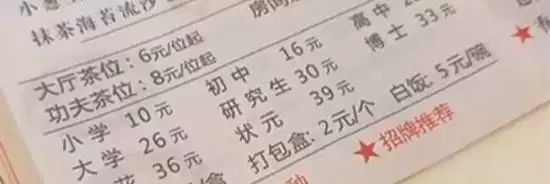 抹茶海苔流沙
房间
大厅茶位：6元/位起
功夫茶位：8元/位起
小学 10元 初中 16元 高中
大学 26元 研究生 30元 博士 33元
花 36元 状元 39元
打包盒：2元/个 白饭：5元/碗
★招牌推荐